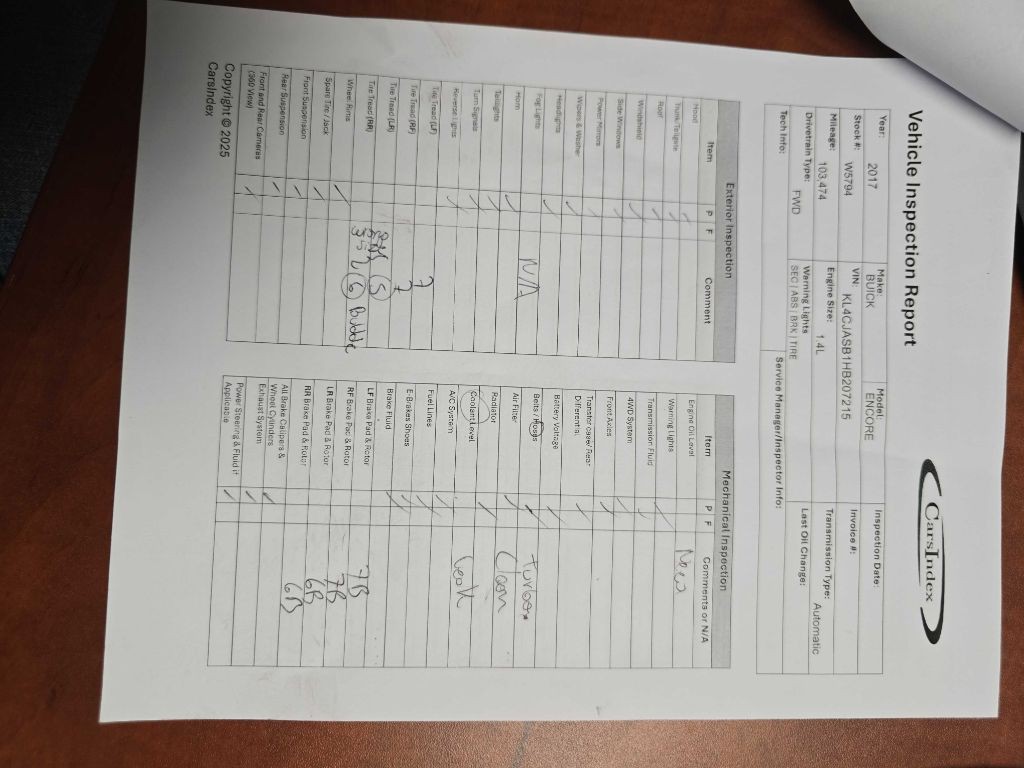 Vehicle Inspection Report
CarsIndex
Year: 2017 Make: BUICK Model: ENCORE Inspection Date:
Stock #: W5794 VIN: KL4CJASB1HB207215 Invoice #:
Mileage: 103,474 Engine Size: 1.4L Transmission Type: Automatic
Drivetrain Type: FWD Warning Lights SEC | ABS | BRK | TIRE Last Oil Change:
Tech Info: Service Manager/Inspector Info:
Exterior Inspection
Item P F Comment
Hood
Trunk Tailgate
Roof
Windshield
Side Windows
Power Mirrors
Wipers & Washer
Headlights
Fog Lights N/A
Horn
Taillights
Turn Signals
Reverse Lights
Tire Tread (LF) 7
Tire Tread (RF) 7
Tire Tread (LR) 5
Tire Tread (RR) 6 Bubble
Wheel Rims
Spare Tire / Jack
Front Suspension
Rear Suspension
Front and Rear Cameras
(360 View)
Copyright © 2025
CarsIndex
Mechanical Inspection
Item P F Comments or N/A
Engine Oil Level New
Warning Lights
Transmission Fluid
4WD System
Front Axles
Transfer case/ Rear
Differential
Battery Voltage
Belts / Hoses turbo
Air Filter
Radiator Clean
Coolant Level
A/C System Leak
Fuel Lines
E-Brakes Shoes
Brake Fluid
LF Brake Pad & Rotor 7B
RF Brake Pad & Rotor 7B
LR Brake Pad & Rotor 6B
RR Brake Pad & Rotor 6B
All Brake Calipers &
Wheel Cylinders
Exhaust System
Power Steering & Fluid if
Applicable